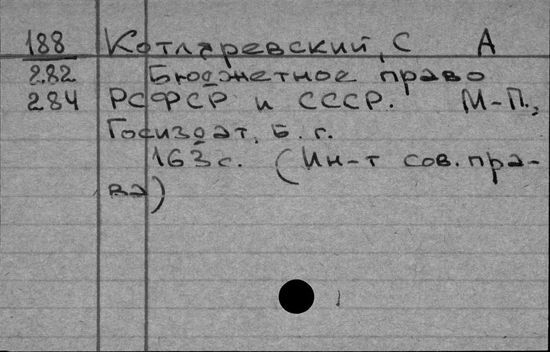 188 Котляревский, С А
282 Бюджетное право
284 РСФСР и СССР. М-П.,
Госиздат, б. г.
163 с. (Ин-т сов. пра-
ва)